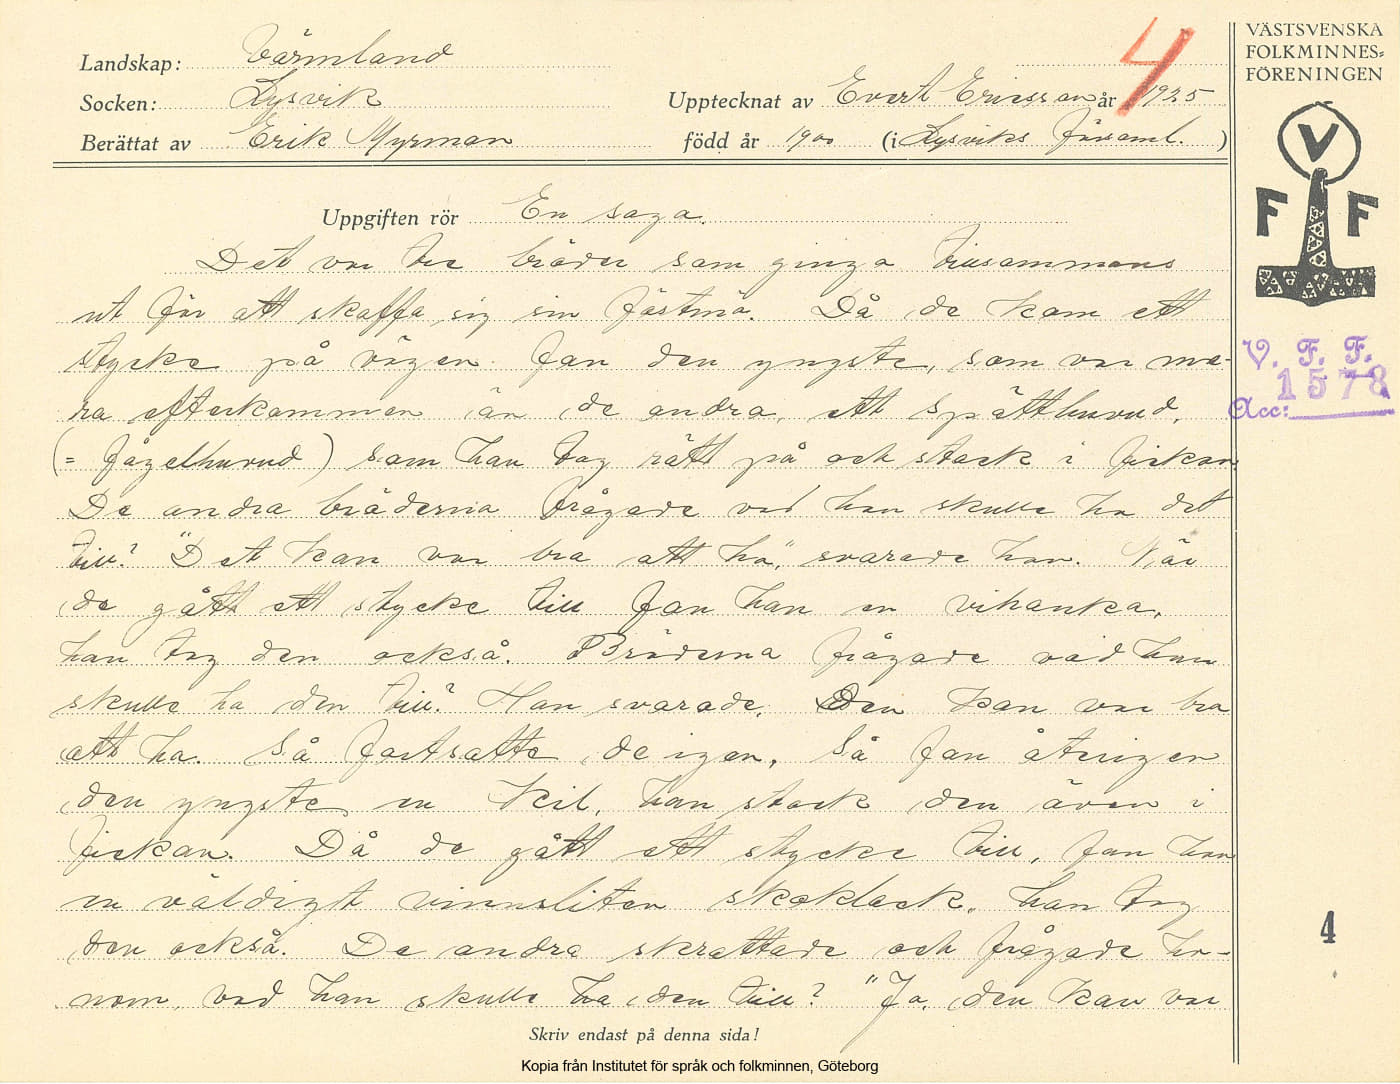 VÄSTSVENSKA
FOLKMINNES=
FÖRENINGEN
V
F F
V. F. F.
1578
Acc:
4
4
Landskap: Värmland
Socken: Lysvik
Upptecknat av Evert Ericsson år 1925
Berättat av Erik Myrman
född år 1900 (i Lysviks församl. )
Uppgiften rör En saga.
Det var tre bröder som gingo tillsammans
ut för att skaffa sig sin fästmö. Då de kom ett
stycke på vägen fan den yngste, som var me-
ra efterkommen än de andra, ett spätthuvud,
(= fågelhuvud) som han tog rätt på och stack i fickan.
De andra bröderna frågade vad han skulle ha det
till? "Det kan var bra att ha", svarade han. När
de gått ett stycke till fan han en vihanka,
han tog den också. Bröderna frågade vad han
skulle ha den till? Han svarade, Den kan var bra
att ha. Så fortsatte de igen, Så fan återigen
den yngste en kil, han stack den även i
fickan. Då de gått ett stycke till, fan han
en väldigt sliten skoklack, han tog
den också. De andra skrattade och frågade ho-
nom, vad han skulle ha den till? "Ja, den kan var
Skriv endast på denna sida!
Kopia från Institutet för språk och folkminnen, Göteborg